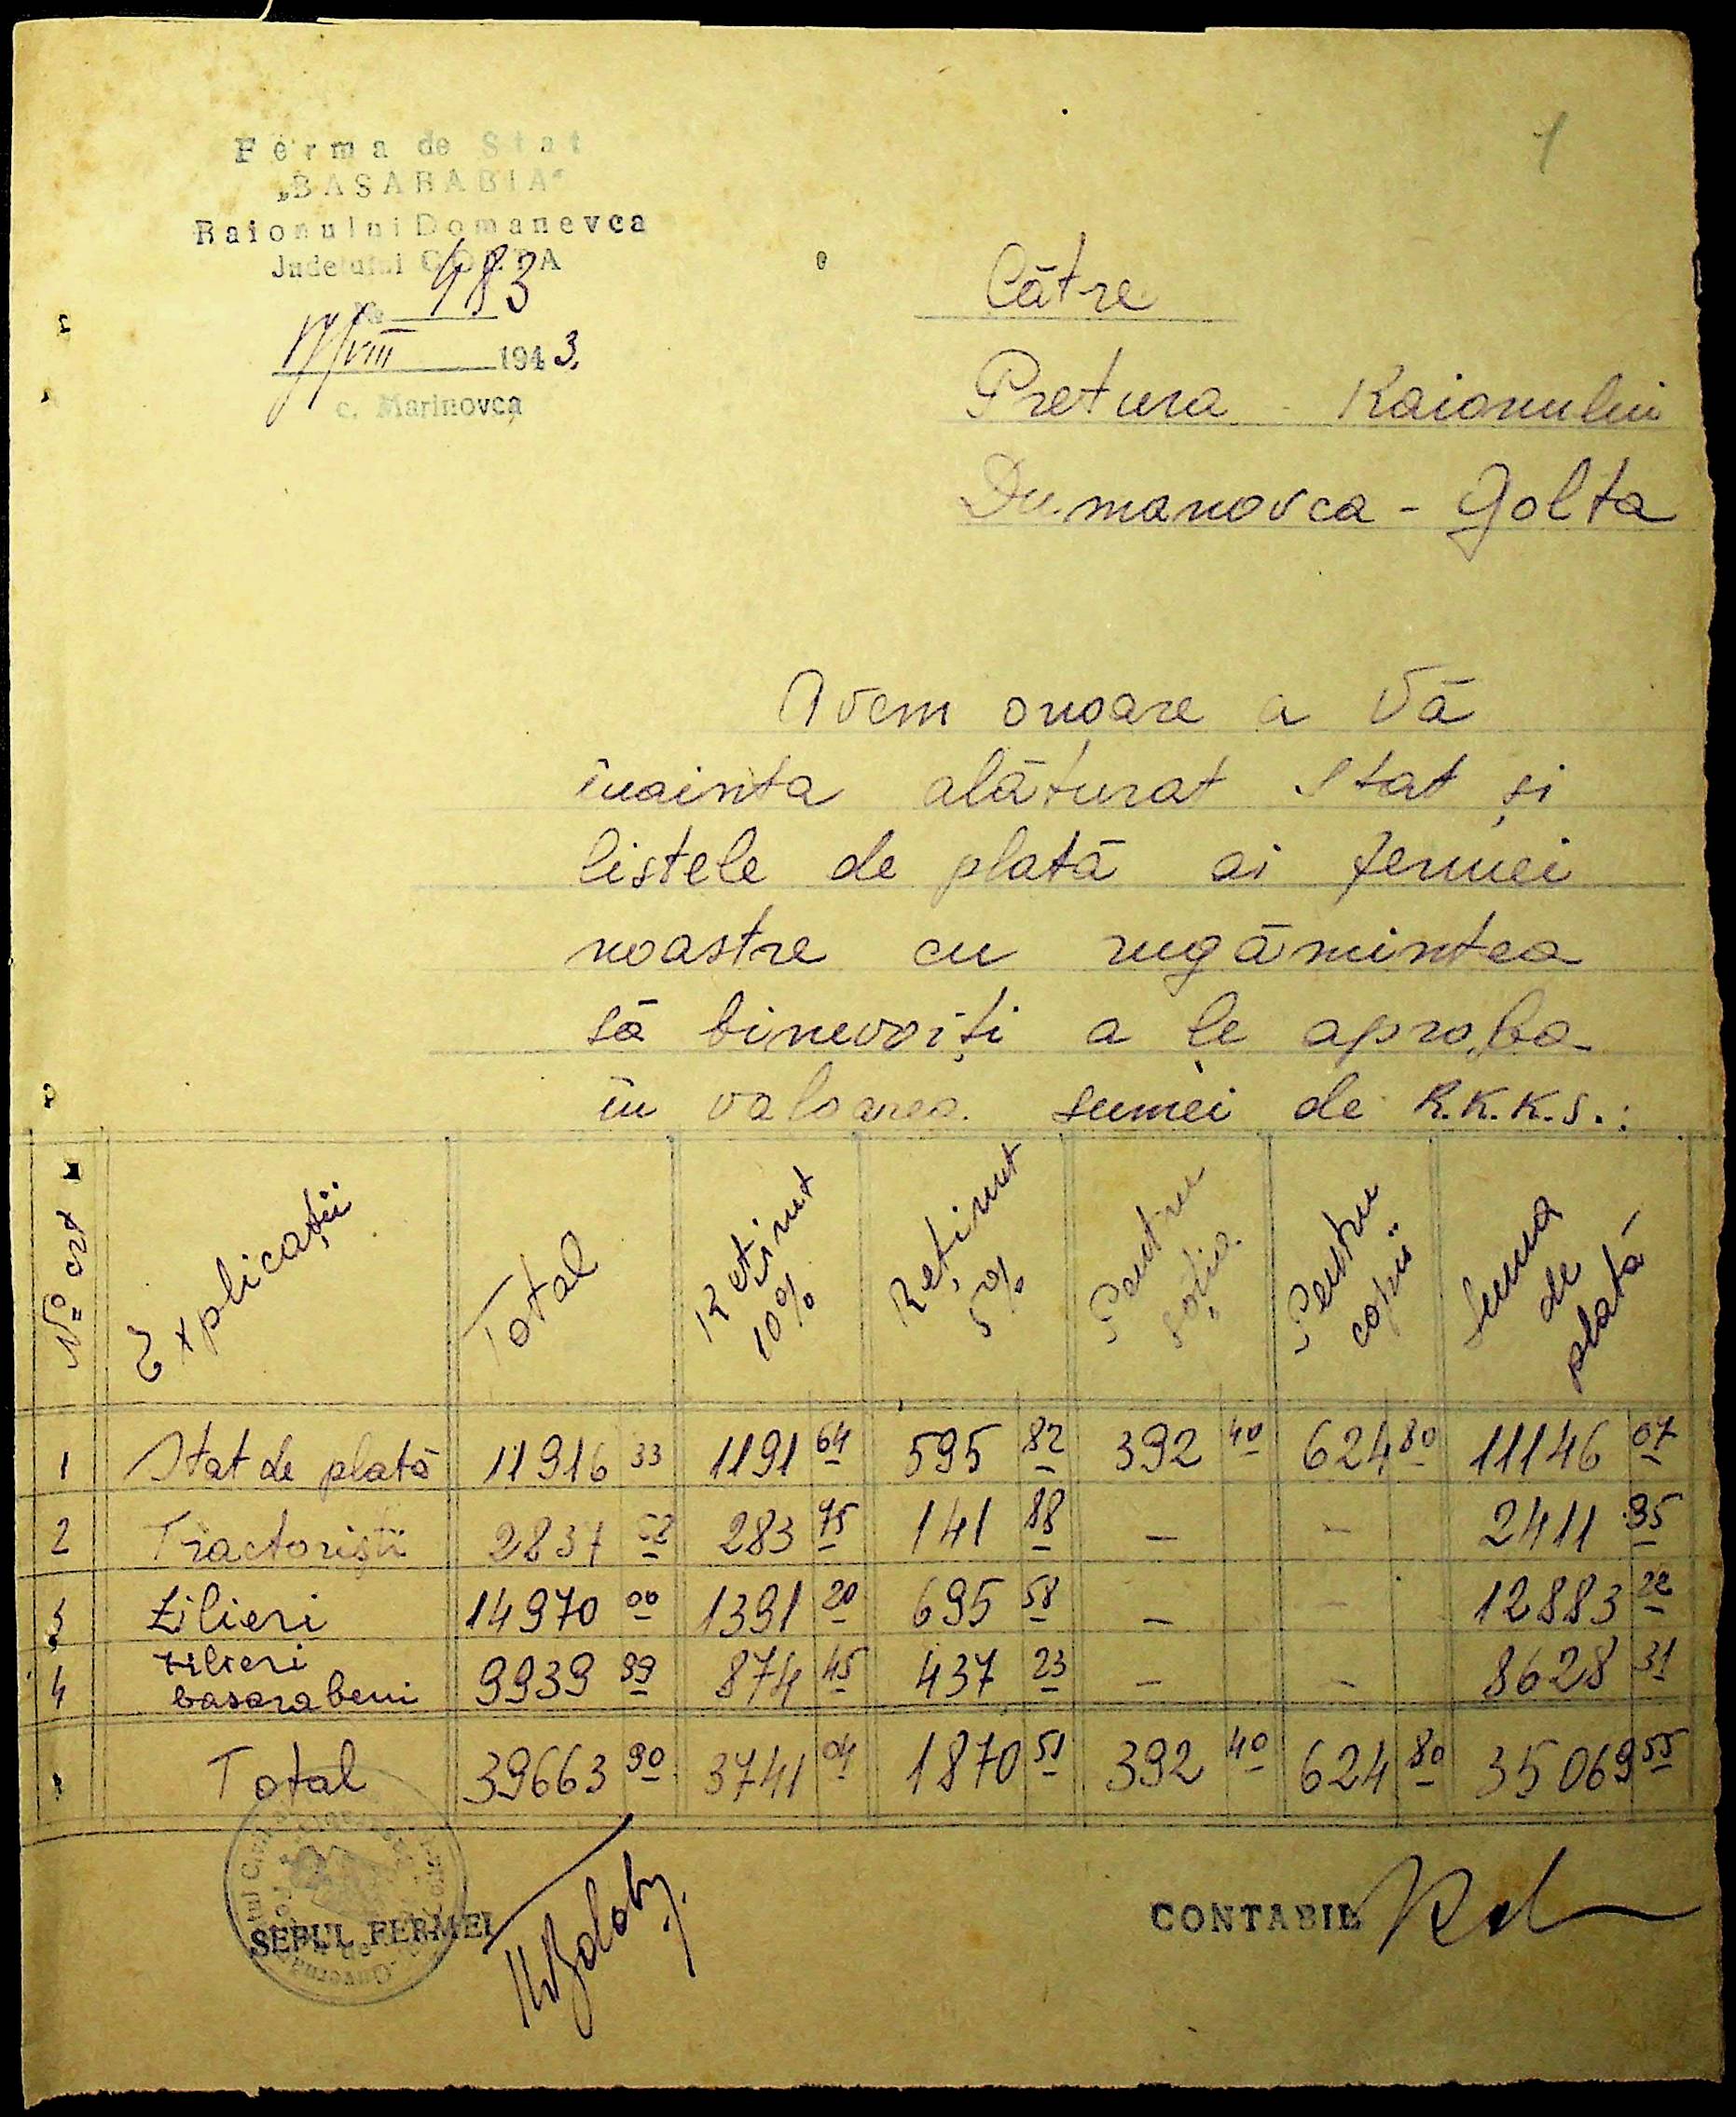 1
Ferma de Stat
„BASARABIA“
Raionului Domanevca
Judetului GOLTA
No 483
17/VIII 1943.
c. Marinovca
Cātre
Pretura Raionului
Dumanovca - Golta
Avem onoare a Vā
înainta alāturat Stat și
listele de platā ai fermei
noastre cu rugāmintea
sā binevoiți a le aproba
în valoarea sumei de R.K.K.S.:
No crt Explicații Total Reținut 10% Reținut 5% Pentru soție Pentru copii Suma de platā
1 Stat de platā 11916 33 1191 64 595 82 392 40 624 80 11146 07
2 Tractoriști 2837 58 283 75 141 88 – – 2411 95
3 Zilieri 14970 00 1391 20 695 58 – – 12883 22
4 Zilieri basarabeni 9939 99 874 45 437 23 – – 8628 31
Total 39663 90 3741 04 1870 51 392 40 624 80 35069 55
ȘEFUL FERMEI
CONTABIL